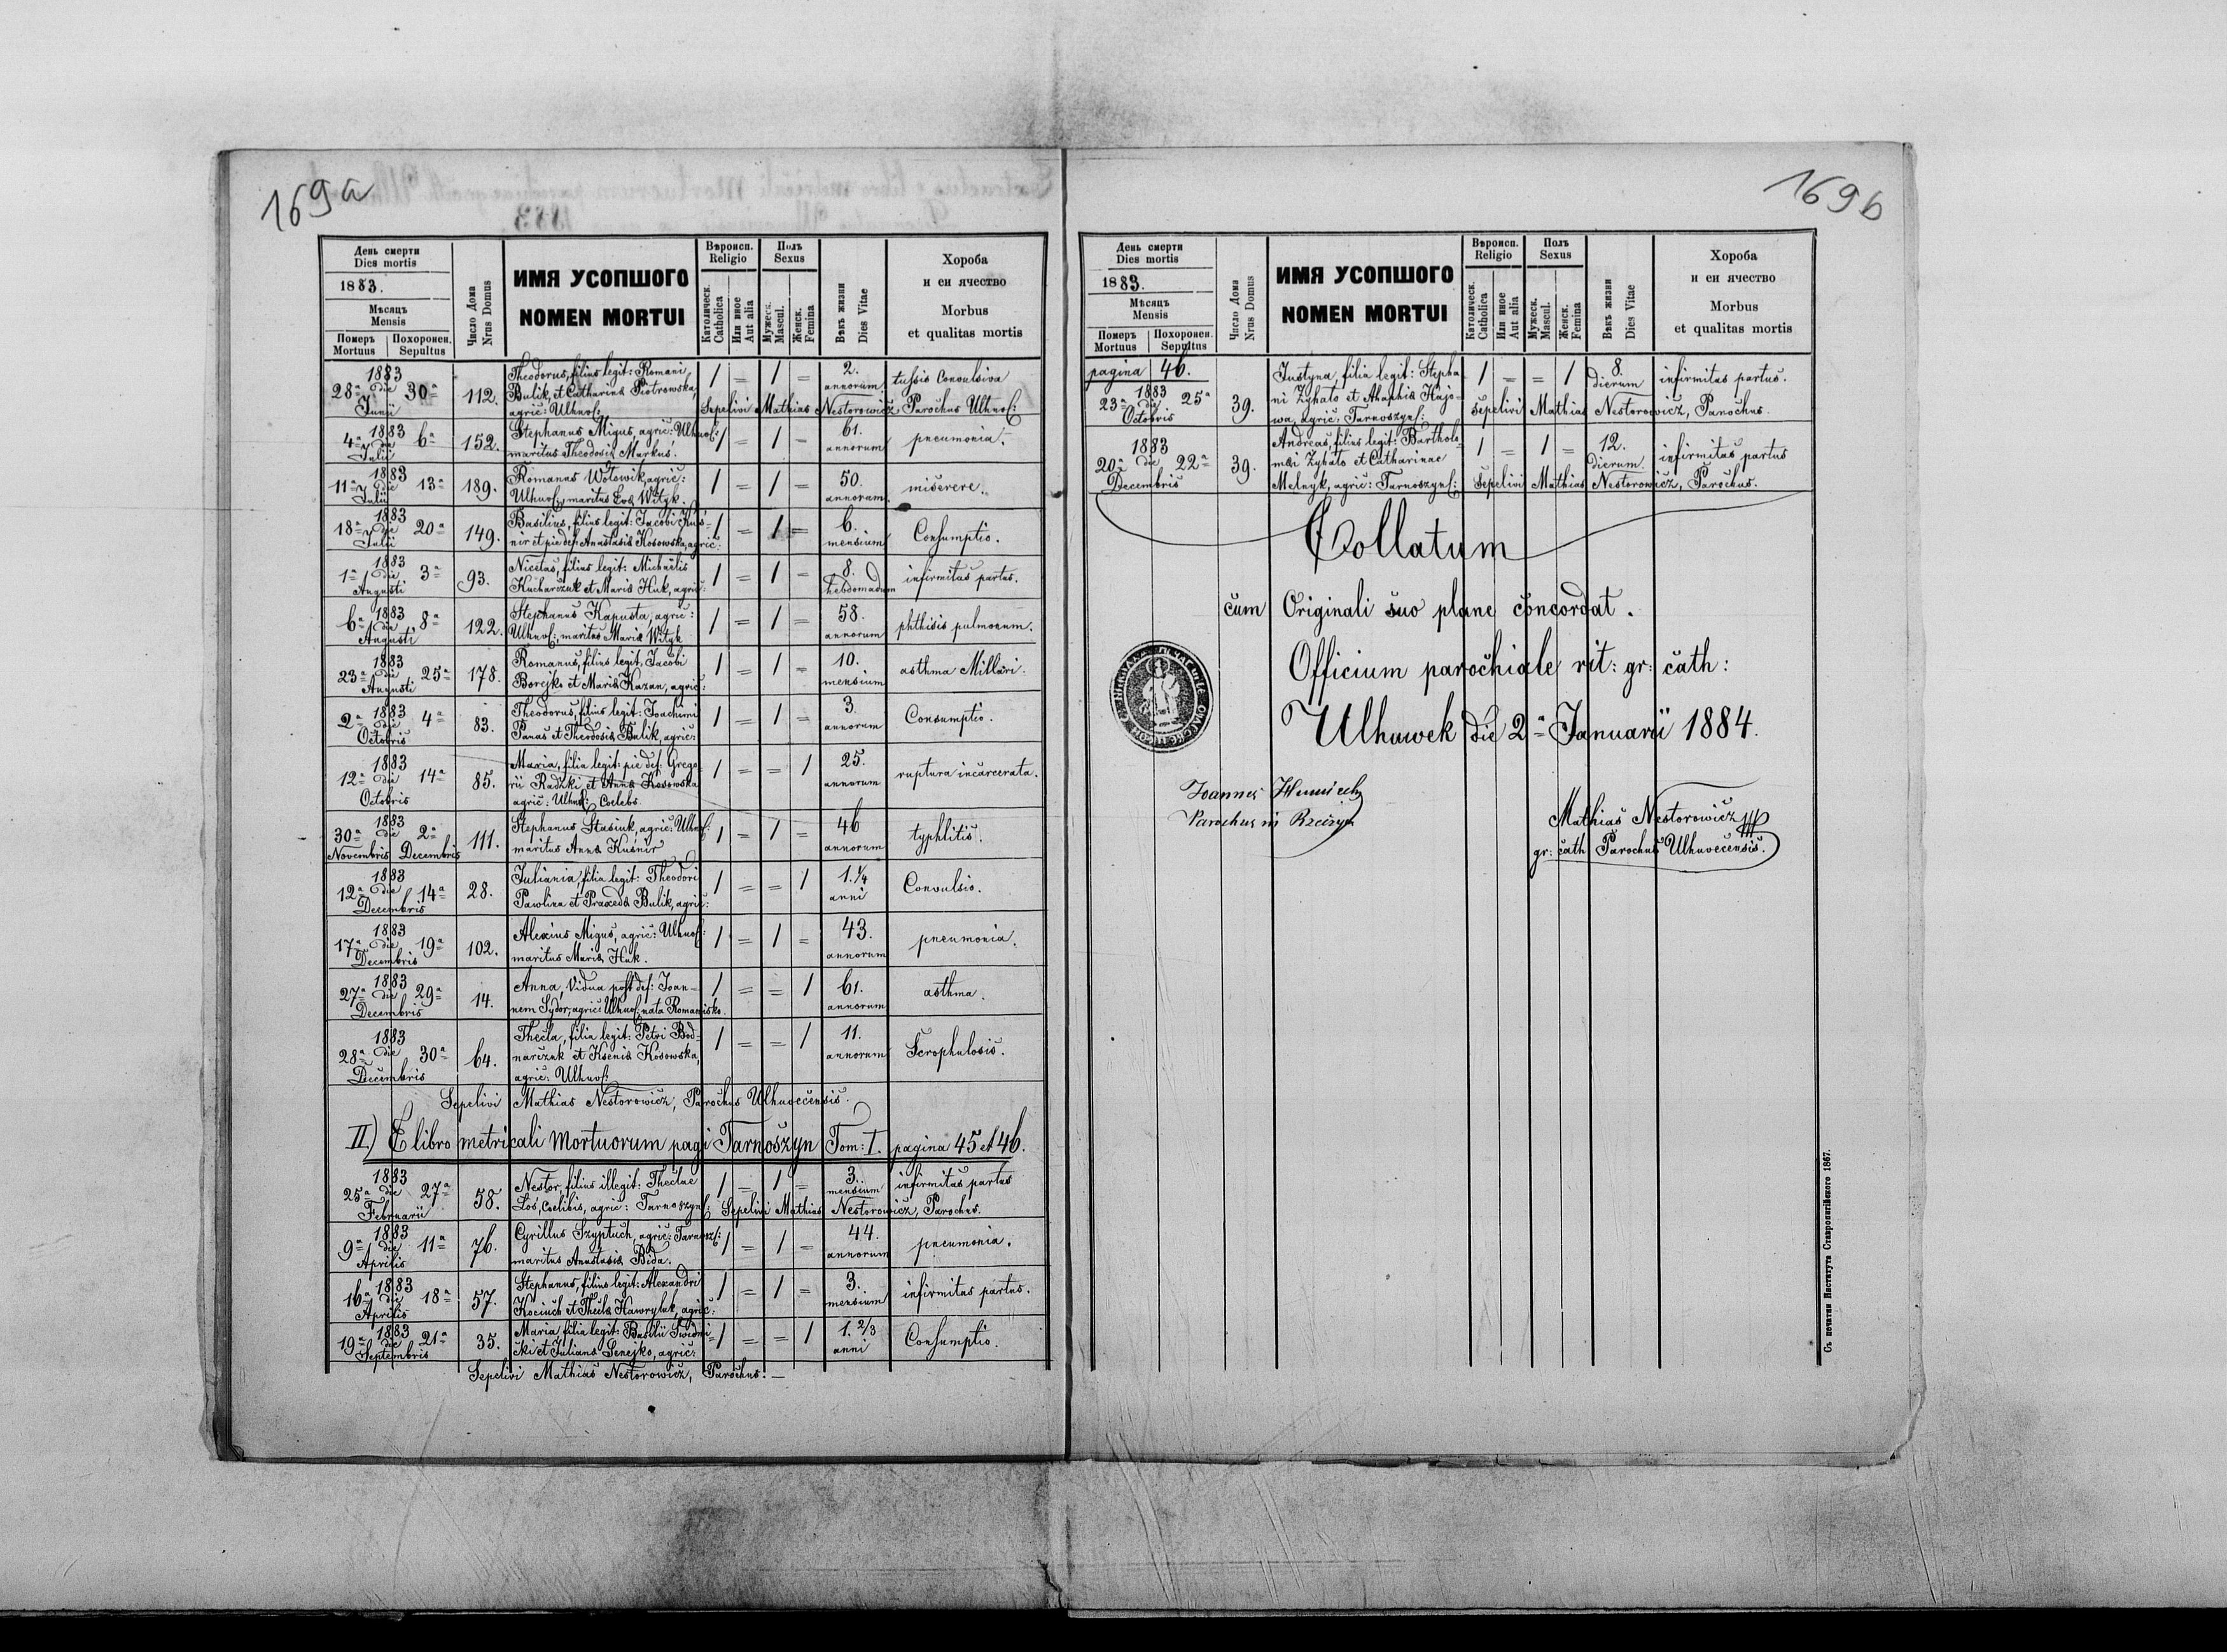 169a
День смерти
Dies mortis
1883.
Мѣсяцъ
Mensis
Померъ
Mortuus
Похоронен.
Sepultus
Число Дома
Nrus Domus
ИМЯ УСОПШОГО
NOMEN MORTUI
Вѣроисп.
Religio
Католическ.
Catholica
Или иное
Aut alia
Полъ
Sexus
Мужеск.
Mascul.
Женск.
Femina
Вѣкъ жизни
Dies Vitae
Хороба
и еи ячество
Morbus
et qualitas mortis
1883
28ª die 30ª
Junii
112.
Theodorus, filius legit: Romani
Bulik, et Catharina Piotrowska,
agric: Ulhuof:
1 = 1 =
2.
annorum
tussis Convulsiva
Sepelivi Mathias Nestorowicz Parochus Ulhuof:
1883
4ª die 6ª
Julii
152.
Stephanus Migus, agric: Ulhuof:
maritus Theodosia Markus.
1 = 1 =
61.
annorum
pneumonia.
1883
11ª die 13ª
Julii
189.
Romanus Wołowik, agric:
Ulhuof: maritus Eva Wityk.
1 = 1 =
50.
annorum
miserere.
1883
18ª die 20ª
Julii
149.
Basilius, filius legit: Jacobi Kus-
nir et pie def: Anastasia Kosowska, agric:
1 = 1 =
6.
mensium
Consumptio.
1883
1ª die 3ª
Augusti
93.
Nicetas, filius legit: Michaelis
Kucharczuk et Maria Huk, agric:
1 = 1 =
8.
hebdomadum
infirmitas partus.
1883
6ª die 8ª
Augusti
122.
Stephanus Kapusta, agric:
Ulhuof: maritus Maria Wityk
1 = 1 =
58.
annorum
phthisis pulmonum.
1883
23ª die 25ª
Augusti
178.
Romanus, filius legit: Jacobi
Borejko et Maria Kazan, agric:
1 = 1 =
10.
mensium
asthma Millari.
1883
2ª die 4ª
Octobris
83.
Theodorus, filius legit: Joachimi
Panas et Theodosia Bulik, agric:
1 = 1 =
3.
annorum
Consumptio.
1883
12ª die 14ª
Octobris
85.
Maria, filia legit: pie def: Grego-
rii Radzki et Anna Kosowska
agric: Ulhuof: Coelebs.
1 = = 1
25.
annorum
ruptura incarcerata.
1883
30ª die 2ª
Novembris Decembris
111.
Stephanus Stasiuk, agric: Ulhuof:
maritus Anna Kusnir
1 = 1 =
46
annorum
typhlitis.
1883
12ª die 14ª
Decembris
28.
Juliania, filia legit: Theodori
Pawlina et Praxeda Bulik, agric:
1 = = 1
1.¼
anni
Convulsio.
1883
17ª die 19ª
Decembris
102.
Alexius Migus, agric: Ulhuof:
maritus Maria Huk.
1 = 1 =
43.
annorum
pneumonia.
1883
27ª die 29ª
Decembris
14.
Anna, Vidua post def: Joan-
nem Sydor, agric: Ulhuof: nata
1 = = 1
61.
annorum
asthma.
1883
28ª die 30ª
Decembris
64.
Thecla, filia legit: Petri Bod-
narczuk et Ksenia Kosowska,
agric: Ulhuof:
1 = = 1
11.
annorum
Scrophulosis.
Sepelivi Mathias Nestorowicz, Parochus Ulhuvecensis.
II.) E libro metricali Mortuorum pagi Tarnoszyn Tom: I. pagina 45 et 46.
1883
25ª die 27ª
Februarii
58.
Nestor, filius illegit: Theclae
Łoś, Coelibis, agric: Tarnoszynf:
1 = 1 =
3.
mensium
infirmitas partus
Sepelivi Mathias Nestorowicz, Parochus.
1883
9ª die 11ª
Aprilis
76.
Cyrillus Szyptuch, agric: Tarnoszf:
maritus Anastasia Bida.
1 = 1 =
44.
annorum
pneumonia.
1883
16ª die 18ª
Aprilis
57.
Stephanus, filius legit: Alexandri
Kociuch et Thecla Hawryluk, agric:
1 = 1 =
3.
mensium
infirmitas partus.
1883
19ª die 21ª
Septembris
35.
Maria, filia legit: Basilii Swidni-
cki et Juliana Senejko, agric:
1 = = 1
1.⅔
anni
Consumptio.
Sepelivi Mathias Nestorowicz, Parochus. —
169b
День смерти
Dies mortis
1883.
Мѣсяцъ
Mensis
Померъ
Mortuus
Похоронен.
Sepultus
Число Дома
Nrus Domus
ИМЯ УСОПШОГО
NOMEN MORTUI
Вѣроисп.
Religio
Католическ.
Catholica
Или иное
Aut alia
Полъ
Sexus
Мужеск.
Mascul.
Женск.
Femina
Вѣкъ жизни
Dies Vitae
Хороба
и еи ячество
Morbus
et qualitas mortis
pagina 46.
1883
23ª die 25ª
Octobris
39.
Justyna, filia legit: Stepha-
ni Zybało et Ahaphia Hajo-
wa, agric: Tarnoszynf:
1 = = 1
8.
dierum
infirmitas partus.
Sepelivi Mathias Nestorowicz, Parochus.
1883
20ª die 22ª
Decembris
39.
Andreas, filius legit: Bartholo-
maei Zybało et Catharinae
Melnyk, agric: Tarnoszynf:
1 = 1 =
12.
dierum
infirmitas partus
Sepelivi Mathias Nestorowicz, Parochus.
Collatum
cum Originali suo plane concordat.
Officium parochiale rit: gr: cath:
Ulhuwek die 2ª Januarii 1884.
Joannes
Parochus in
Mathias Nestorowicz
gr: cath Parochus Ulhuvecensis.
Съ печатни Института Ставропигійского 1867.